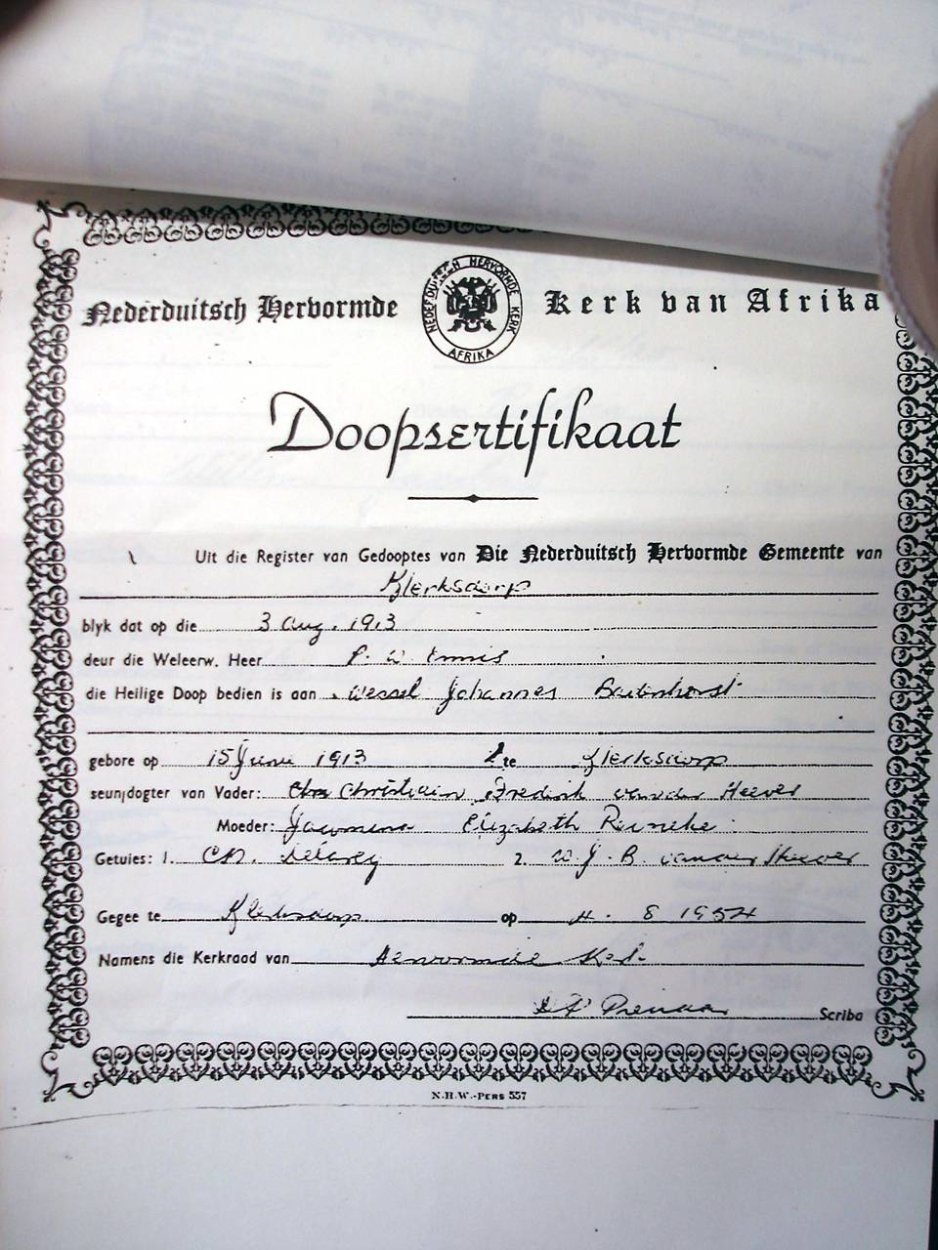 Nederduitsch Hervormde Kerk van Afrika
NEDERDUITSCH HERVORMDE KERK AFRIKA
Doopsertifikaat
Uit die Register van Gedooptes van Die Nederduitsch Hervormde Gemeente van
Klerksdorp
blyk dat op die 3 Aug. 1913
deur die Weleerw. Heer P. W.
die Heilige Doop bedien is aan Wessel Johannes
gebore op 15 Junie 1913 te Klerksdorp
seun/dogter van Vader: Christiaan Fredrik van der Heever
Moeder: Jacomina Elizabeth Reineke
Getuies: 1. Delarey 2. W. J. B. van der Heever
Gegee te Klerksdorp op 4. 8 1954
Namens die Kerkraad van Hervormde Kerk
Scriba
N.H.W.-PERS 557